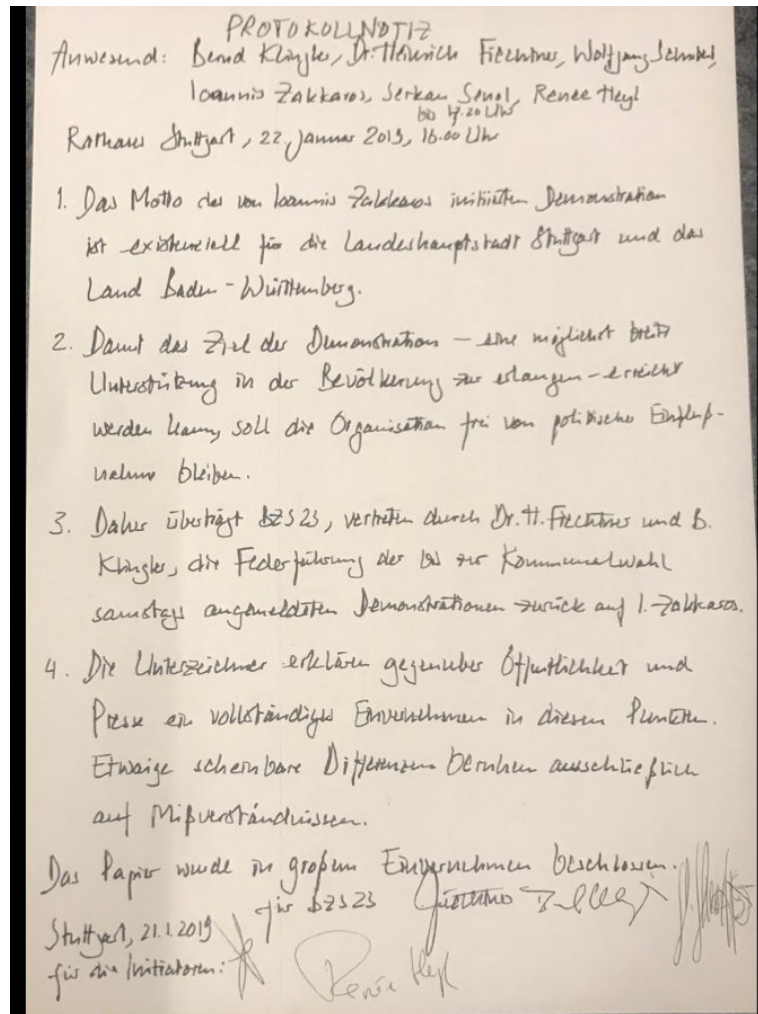 PROTOKOLLNOTIZ
Anwesend: Bernd Klingler, Dr. Heinrich Fiechtner, Wolfgang
Ioannis Zakkaros, Serkan Senol, Renée Heyl
bis 17.20 Uhr
Rathaus Stuttgart, 22. Januar 2019, 16.00 Uhr
1. Das Motto der von Ioannis Zakkaros initiierten Demonstration
ist existenziell für die Landeshauptstadt Stuttgart und das
Land Baden-Württemberg.
2. Damit das Ziel der Demonstration – eine möglichst breite
Unterstützung in der Bevölkerung zur erlangen – erreicht
werden kann, soll die Organisation frei von politischer Einfluß-
nahme bleiben.
3. Daher überträgt BZS23, vertreten durch Dr. H. Fiechtner und B.
Klingler, die Federführung der bis zur Kommunalwahl
samstags angemeldeten Demonstrationen zurück auf I. Zakkaros.
4. Die Unterzeichner erklären gegenüber Öffentlichkeit und
Presse ein vollständiges Einvernehmen in diesen Punkten.
Etwaige scheinbare Differenzen beruhen ausschließlich
auf Mißverständnissen.
Das Papier wurde in großem Einvernehmen beschlossen.
für BZS23
Stuttgart, 21.1.2019
für die Initiatoren:
Renée Heyl